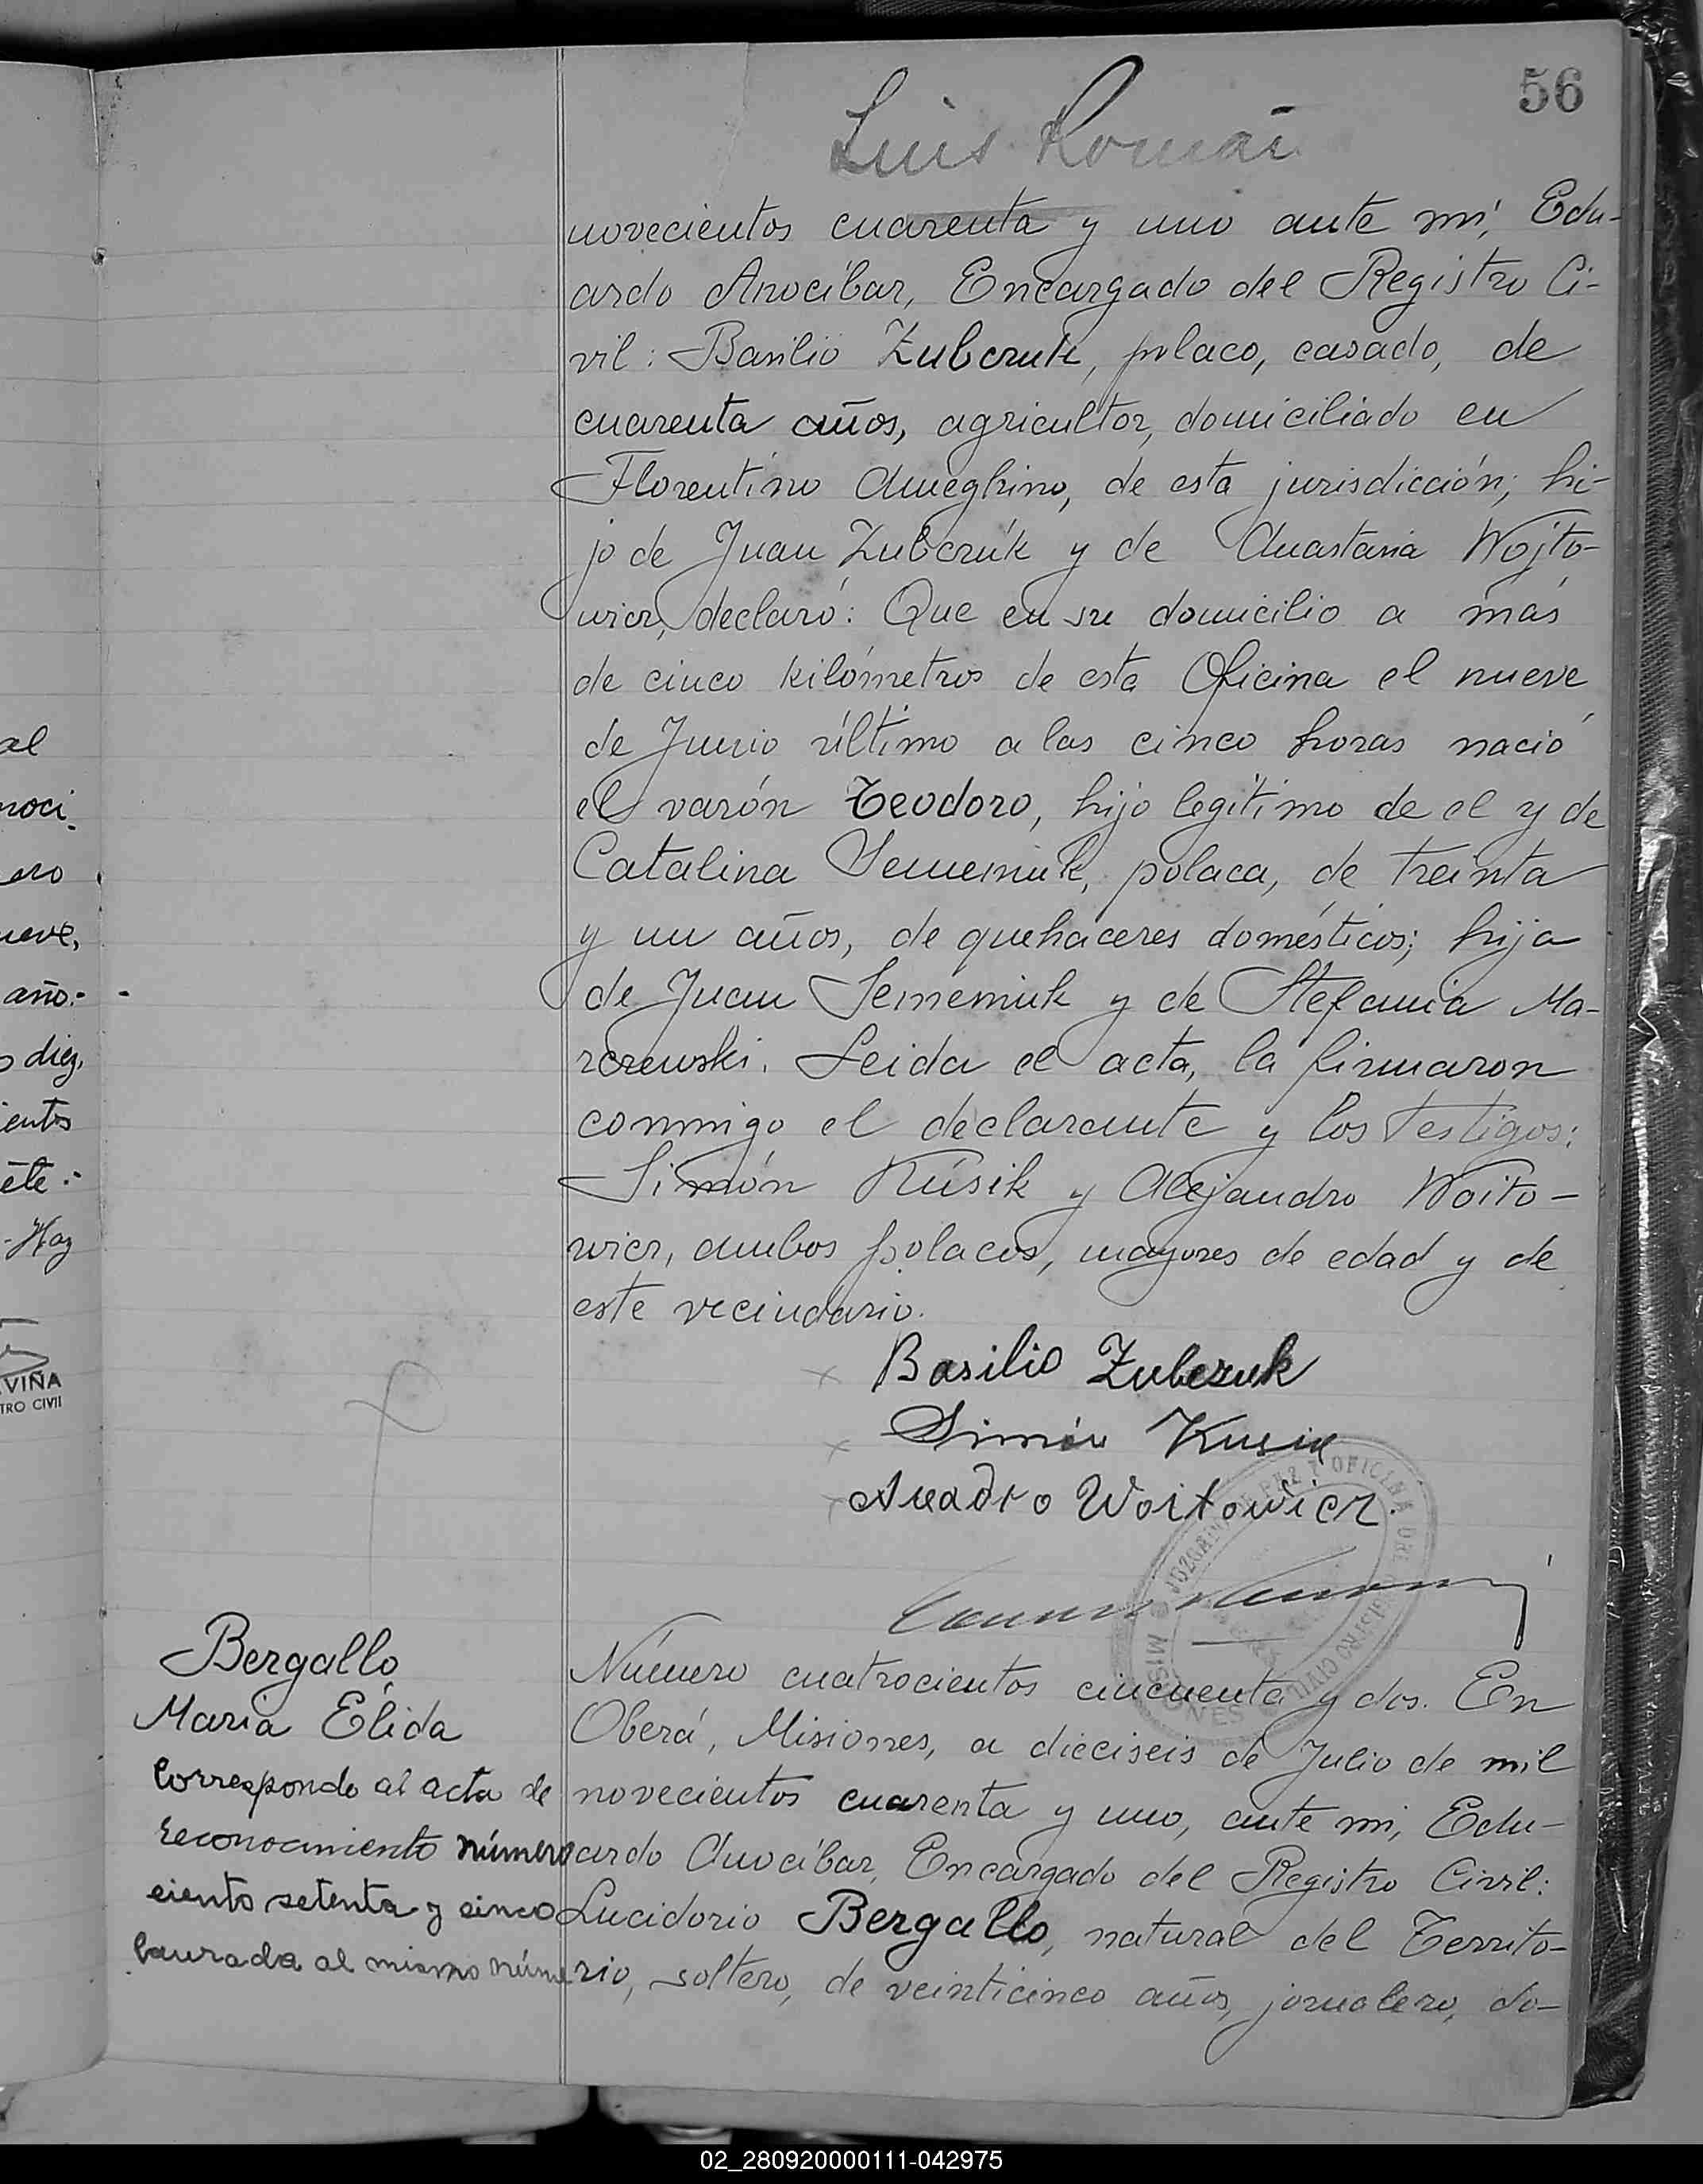 56
Luis Román
novecientos cuarenta y uno ante mí, Edu-
ardo Anocíbar, Encargado del Registro Ci-
vil: Basilio Zubczuk, polaco, casado, de
cuarenta años, agricultor, domiciliado en
Florentino Ameghino, de esta jurisdicción; hi-
jo de Juan Zubczuk y de Anastasia Wojto-
wicz, declaró: Que en su domicilio a más
de cinco kilómetros de esta Oficina el nueve
de Junio último a las cinco horas nació
el varón Teodoro, hijo legítimo de el y de
Catalina Semeniuk, polaca, de treinta
y un años, de quehaceres domésticos; hija
de Juan Semeniuk y de Stefania Ma-
rczewski. Leida el acta, la firmaron
conmigo el declarante y los testigos:
Simón Kúsik y Alejandro Woito-
wicz, ambos polacos, mayores de edad y de
este vecindario.
Basilio Zubczuk
Simón Kusik
Woitowicz
JUZGADO DE PAZ Y OFICINA DEL REGISTRO CIVIL
MISIONES
Bergallo
Maria Élida
Corresponde al acta de
reconocimiento número
ciento setenta y cinco
labrada al mismo núme
Número cuatrocientos cincuenta y dos. En
Oberá, Misiones, a dieciseis de Julio de mil
novecientos cuarenta y uno, ante mi, Edu-
ardo Anocíbar, Encargado del Registro Civil:
Lucidorio Bergallo, natural del Territo-
rio, soltero, de veinticinco años, jornalero, do-
al
noci.
ero
ueve,
año:-
o diez,
ientos
ete:-
-Hay
VIÑA
TRO CIVIL
02_280920000111-042975